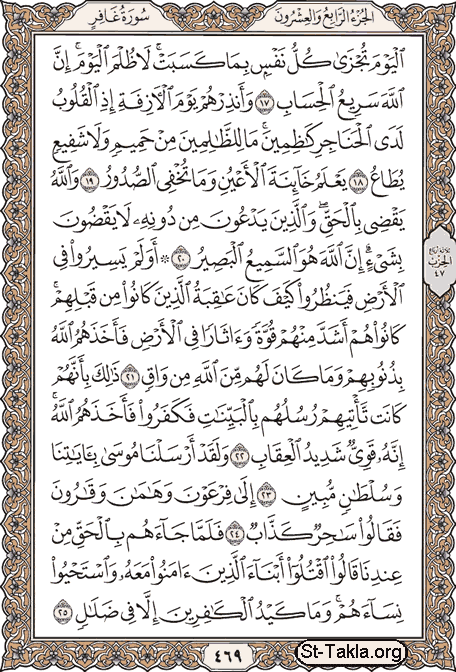 سُورَةُ غَافِرٍ
الجُزْءُ الرَّابِعُ وَالعِشْرُونَ
ٱلْيَوْمَ تُجْزَىٰ كُلُّ نَفْسٍۭ بِمَا كَسَبَتْ ۚ لَا ظُلْمَ ٱلْيَوْمَ ۚ إِنَّ
ٱللَّهَ سَرِيعُ ٱلْحِسَابِ ١٧ وَأَنذِرْهُمْ يَوْمَ ٱلْأَزِفَةِ إِذِ ٱلْقُلُوبُ
لَدَى ٱلْحَنَاجِرِ كَٰظِمِينَ ۚ مَا لِلظَّٰلِمِينَ مِنْ حَمِيمٍ وَلَا شَفِيعٍ
يُطَاعُ ١٨ يَعْلَمُ خَآئِنَةَ ٱلْأَعْيُنِ وَمَا تُخْفِى ٱلصُّدُورُ ١٩ وَٱللَّهُ
يَقْضِى بِٱلْحَقِّ ۖ وَٱلَّذِينَ يَدْعُونَ مِن دُونِهِۦ لَا يَقْضُونَ
بِشَىْءٍ ۗ إِنَّ ٱللَّهَ هُوَ ٱلسَّمِيعُ ٱلْبَصِيرُ ٢٠ ۞ أَوَلَمْ يَسِيرُوا۟ فِى
ٱلْأَرْضِ فَيَنظُرُوا۟ كَيْفَ كَانَ عَٰقِبَةُ ٱلَّذِينَ كَانُوا۟ مِن قَبْلِهِمْ ۚ
كَانُوا۟ هُمْ أَشَدَّ مِنْهُمْ قُوَّةً وَءَاثَارًا فِى ٱلْأَرْضِ فَأَخَذَهُمُ ٱللَّهُ
بِذُنُوبِهِمْ وَمَا كَانَ لَهُم مِّنَ ٱللَّهِ مِن وَاقٍ ٢١ ذَٰلِكَ بِأَنَّهُمْ
كَانَت تَّأْتِيهِمْ رُسُلُهُم بِٱلْبَيِّنَٰتِ فَكَفَرُوا۟ فَأَخَذَهُمُ ٱللَّهُ ۚ
إِنَّهُۥ قَوِىٌّ شَدِيدُ ٱلْعِقَابِ ٢٢ وَلَقَدْ أَرْسَلْنَا مُوسَىٰ بِـَٔايَٰتِنَا
وَسُلْطَٰنٍ مُّبِينٍ ٢٣ إِلَىٰ فِرْعَوْنَ وَهَٰمَٰنَ وَقَٰرُونَ
فَقَالُوا۟ سَٰحِرٌ كَذَّابٌ ٢٤ فَلَمَّا جَآءَهُم بِٱلْحَقِّ مِنْ
عِندِنَا قَالُوا۟ ٱقْتُلُوٓا۟ أَبْنَآءَ ٱلَّذِينَ ءَامَنُوا۟ مَعَهُۥ وَٱسْتَحْيُوا۟
نِسَآءَهُمْ ۚ وَمَا كَيْدُ ٱلْكَٰفِرِينَ إِلَّا فِى ضَلَٰلٍ ٢٥
الحزب
٤٧
٤٦٩
St-Takla.org